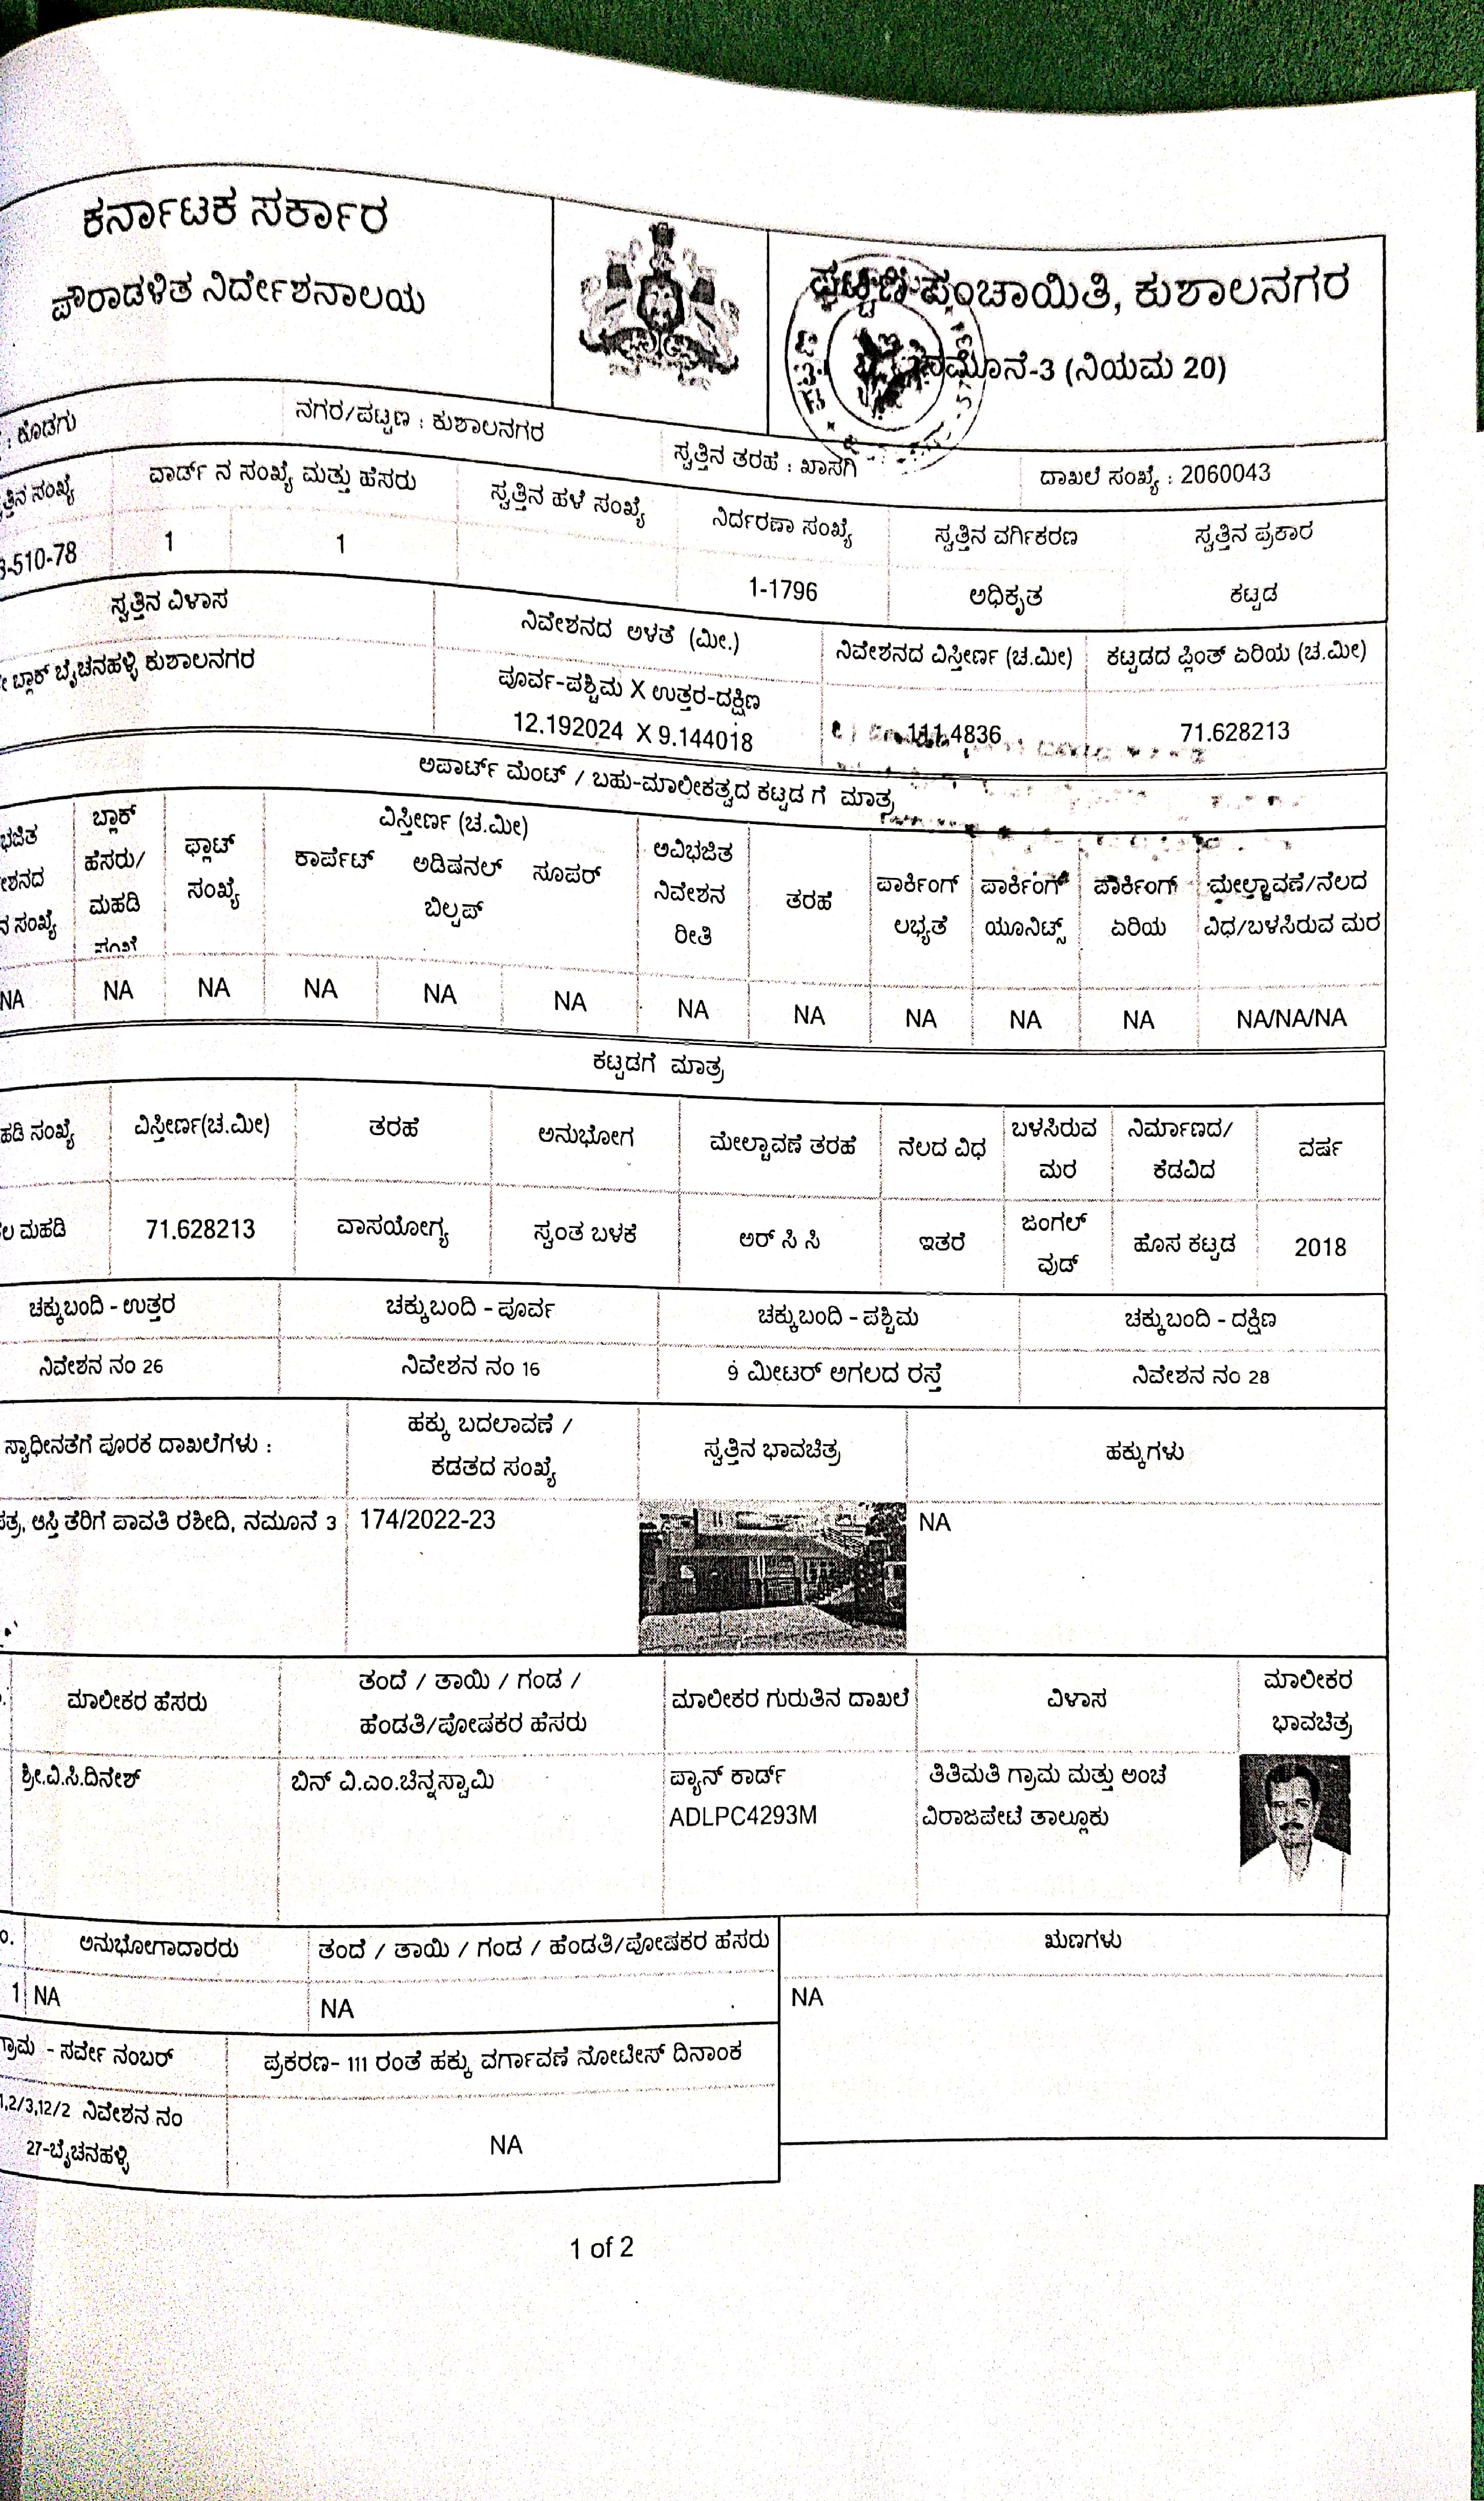 ಕರ್ನಾಟಕ ಸರ್ಕಾರ
ಪೌರಾಡಳಿತ ನಿರ್ದೇಶನಾಲಯ
ಪಟ್ಟಣ ಪಂಚಾಯಿತಿ, ಕುಶಾಲನಗರ
ನಮೂನೆ-3 (ನಿಯಮ 20)
: ಕೊಡಗು ನಗರ/ಪಟ್ಟಣ : ಕುಶಾಲನಗರ ಸ್ವತ್ತಿನ ತರಹೆ : ಖಾಸಗಿ ದಾಖಲೆ ಸಂಖ್ಯೆ : 2060043
ತ್ತಿನ ಸಂಖ್ಯೆ ವಾರ್ಡ್ ನ ಸಂಖ್ಯೆ ಮತ್ತು ಹೆಸರು ಸ್ವತ್ತಿನ ಹಳೆ ಸಂಖ್ಯೆ ನಿರ್ದರಣಾ ಸಂಖ್ಯೆ ಸ್ವತ್ತಿನ ವರ್ಗಿಕರಣ ಸ್ವತ್ತಿನ ಪ್ರಕಾರ
3-510-78 1 1 1-1796 ಅಧಿಕೃತ ಕಟ್ಟಡ
ಸ್ವತ್ತಿನ ವಿಳಾಸ ನಿವೇಶನದ ಅಳತೆ (ಮೀ.) ನಿವೇಶನದ ವಿಸ್ತೀರ್ಣ (ಚ.ಮೀ) ಕಟ್ಟಡದ ಪ್ಲಿಂತ್ ಏರಿಯ (ಚ.ಮೀ)
ಬ್ಲಾಕ್ ಬೈಚನಹಳ್ಳಿ ಕುಶಾಲನಗರ ಪೂರ್ವ-ಪಶ್ಚಿಮ X ಉತ್ತರ-ದಕ್ಷಿಣ
12.192024 X 9.144018 111.4836 71.628213
ಅಪಾರ್ಟ್ ಮೆಂಟ್ / ಬಹು-ಮಾಲೀಕತ್ವದ ಕಟ್ಟಡ ಗೆ ಮಾತ್ರ
ಭಜಿತ ಬ್ಲಾಕ್ ಫ್ಲಾಟ್ ವಿಸ್ತೀರ್ಣ (ಚ.ಮೀ) ಅವಿಭಜಿತ
ಶನದ ಹೆಸರು/ ಸಂಖ್ಯೆ ಕಾರ್ಪೆಟ್ ಅಡಿಷನಲ್ ಸೂಪರ್ ನಿವೇಶನ ತರಹೆ ಪಾರ್ಕಿಂಗ್ ಪಾರ್ಕಿಂಗ್ ಪಾರ್ಕಿಂಗ್ ಮೇಲ್ಚಾವಣಿ/ನೆಲದ
ನ ಸಂಖ್ಯೆ ಮಹಡಿ ಬಿಲ್ಟಪ್ ರೀತಿ ಲಭ್ಯತೆ ಯೂನಿಟ್ಸ್ ಏರಿಯ ವಿಧ/ಬಳಸಿರುವ ಮರ
NA NA NA NA NA NA NA NA NA NA NA NA/NA/NA
ಕಟ್ಟಡಗೆ ಮಾತ್ರ
ಹಡಿ ಸಂಖ್ಯೆ ವಿಸ್ತೀರ್ಣ(ಚ.ಮೀ) ತರಹೆ ಅನುಭೋಗ ಮೇಲ್ಚಾವಣಿ ತರಹೆ ನೆಲದ ವಿಧ ಬಳಸಿರುವ ನಿರ್ಮಾಣದ/ ವರ್ಷ
ಮರ ಕೆಡವಿದ
ಲ ಮಹಡಿ 71.628213 ವಾಸಯೋಗ್ಯ ಸ್ವಂತ ಬಳಕೆ ಅರ್ ಸಿ ಸಿ ಇತರೆ ಜಂಗಲ್ ಹೊಸ ಕಟ್ಟಡ 2018
ವುಡ್
ಚಕ್ಕುಬಂದಿ - ಉತ್ತರ ಚಕ್ಕುಬಂದಿ - ಪೂರ್ವ ಚಕ್ಕುಬಂದಿ - ಪಶ್ಚಿಮ ಚಕ್ಕುಬಂದಿ - ದಕ್ಷಿಣ
ನಿವೇಶನ ನಂ 26 ನಿವೇಶನ ನಂ 16 9 ಮೀಟರ್ ಅಗಲದ ರಸ್ತೆ ನಿವೇಶನ ನಂ 28
ಸ್ವಾಧೀನತೆಗೆ ಪೂರಕ ದಾಖಲೆಗಳು : ಹಕ್ಕು ಬದಲಾವಣೆ / ಸ್ವತ್ತಿನ ಭಾವಚಿತ್ರ ಹಕ್ಕುಗಳು
ಕಡತದ ಸಂಖ್ಯೆ
ಪತ್ರ, ಆಸ್ತಿ ತೆರಿಗೆ ಪಾವತಿ ರಶೀದಿ, ನಮೂನೆ 3 174/2022-23 NA
ಮಾಲೀಕರ ಹೆಸರು ತಂದೆ / ತಾಯಿ / ಗಂಡ / ಮಾಲೀಕರ ಗುರುತಿನ ದಾಖಲೆ ವಿಳಾಸ ಮಾಲೀಕರ
ಹೆಂಡತಿ/ಪೋಷಕರ ಹೆಸರು ಭಾವಚಿತ್ರ
ಶ್ರೀ.ವಿ.ಸಿ.ದಿನೇಶ್ ಬಿನ್ ವಿ.ಎಂ.ಚಿನ್ನಸ್ವಾಮಿ ಪ್ಯಾನ್ ಕಾರ್ಡ್ ತಿತಿಮತಿ ಗ್ರಾಮ ಮತ್ತು ಅಂಚೆ
ADLPC4293M ವಿರಾಜಪೇಟೆ ತಾಲ್ಲೂಕು
ಅನುಭೋಗಾದಾರರು ತಂದೆ / ತಾಯಿ / ಗಂಡ / ಹೆಂಡತಿ/ಪೋಷಕರ ಹೆಸರು ಋಣಗಳು
1 NA NA NA
ಗ್ರಾಮ - ಸರ್ವೇ ನಂಬರ್ ಪ್ರಕರಣ- 111 ರಂತೆ ಹಕ್ಕು ವರ್ಗಾವಣೆ ನೋಟೀಸ್ ದಿನಾಂಕ
1,2/3,12/2 ನಿವೇಶನ ನಂ
27-ಬೈಚನಹಳ್ಳಿ NA
1 of 2